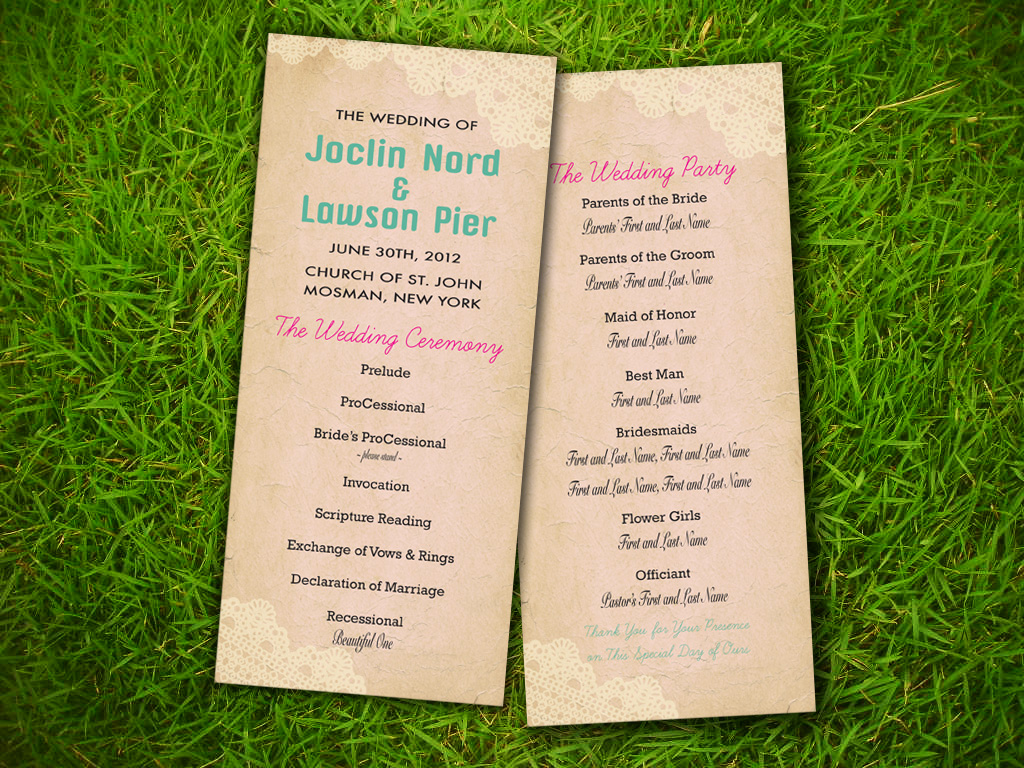 THE WEDDING OF
Joclin Nord
&
Lawson Pier
JUNE 30TH, 2012
CHURCH OF ST. JOHN
MOSMAN, NEW YORK
The Wedding Ceremony
Prelude
ProCessional
Bride's ProCessional
~ please stand ~
Invocation
Scripture Reading
Exchange of Vows & Rings
Declaration of Marriage
Recessional
Beautiful One
The Wedding Party
Parents of the Bride
Parents' First and Last Name
Parents of the Groom
Parents' First and Last Name
Maid of Honor
First and Last Name
Best Man
First and Last Name
Bridesmaids
First and Last Name, First and Last Name
First and Last Name, First and Last Name
Flower Girls
First and Last Name
Officiant
Pastor's First and Last Name
Thank You for Your Presence
on This Special Day of Ours